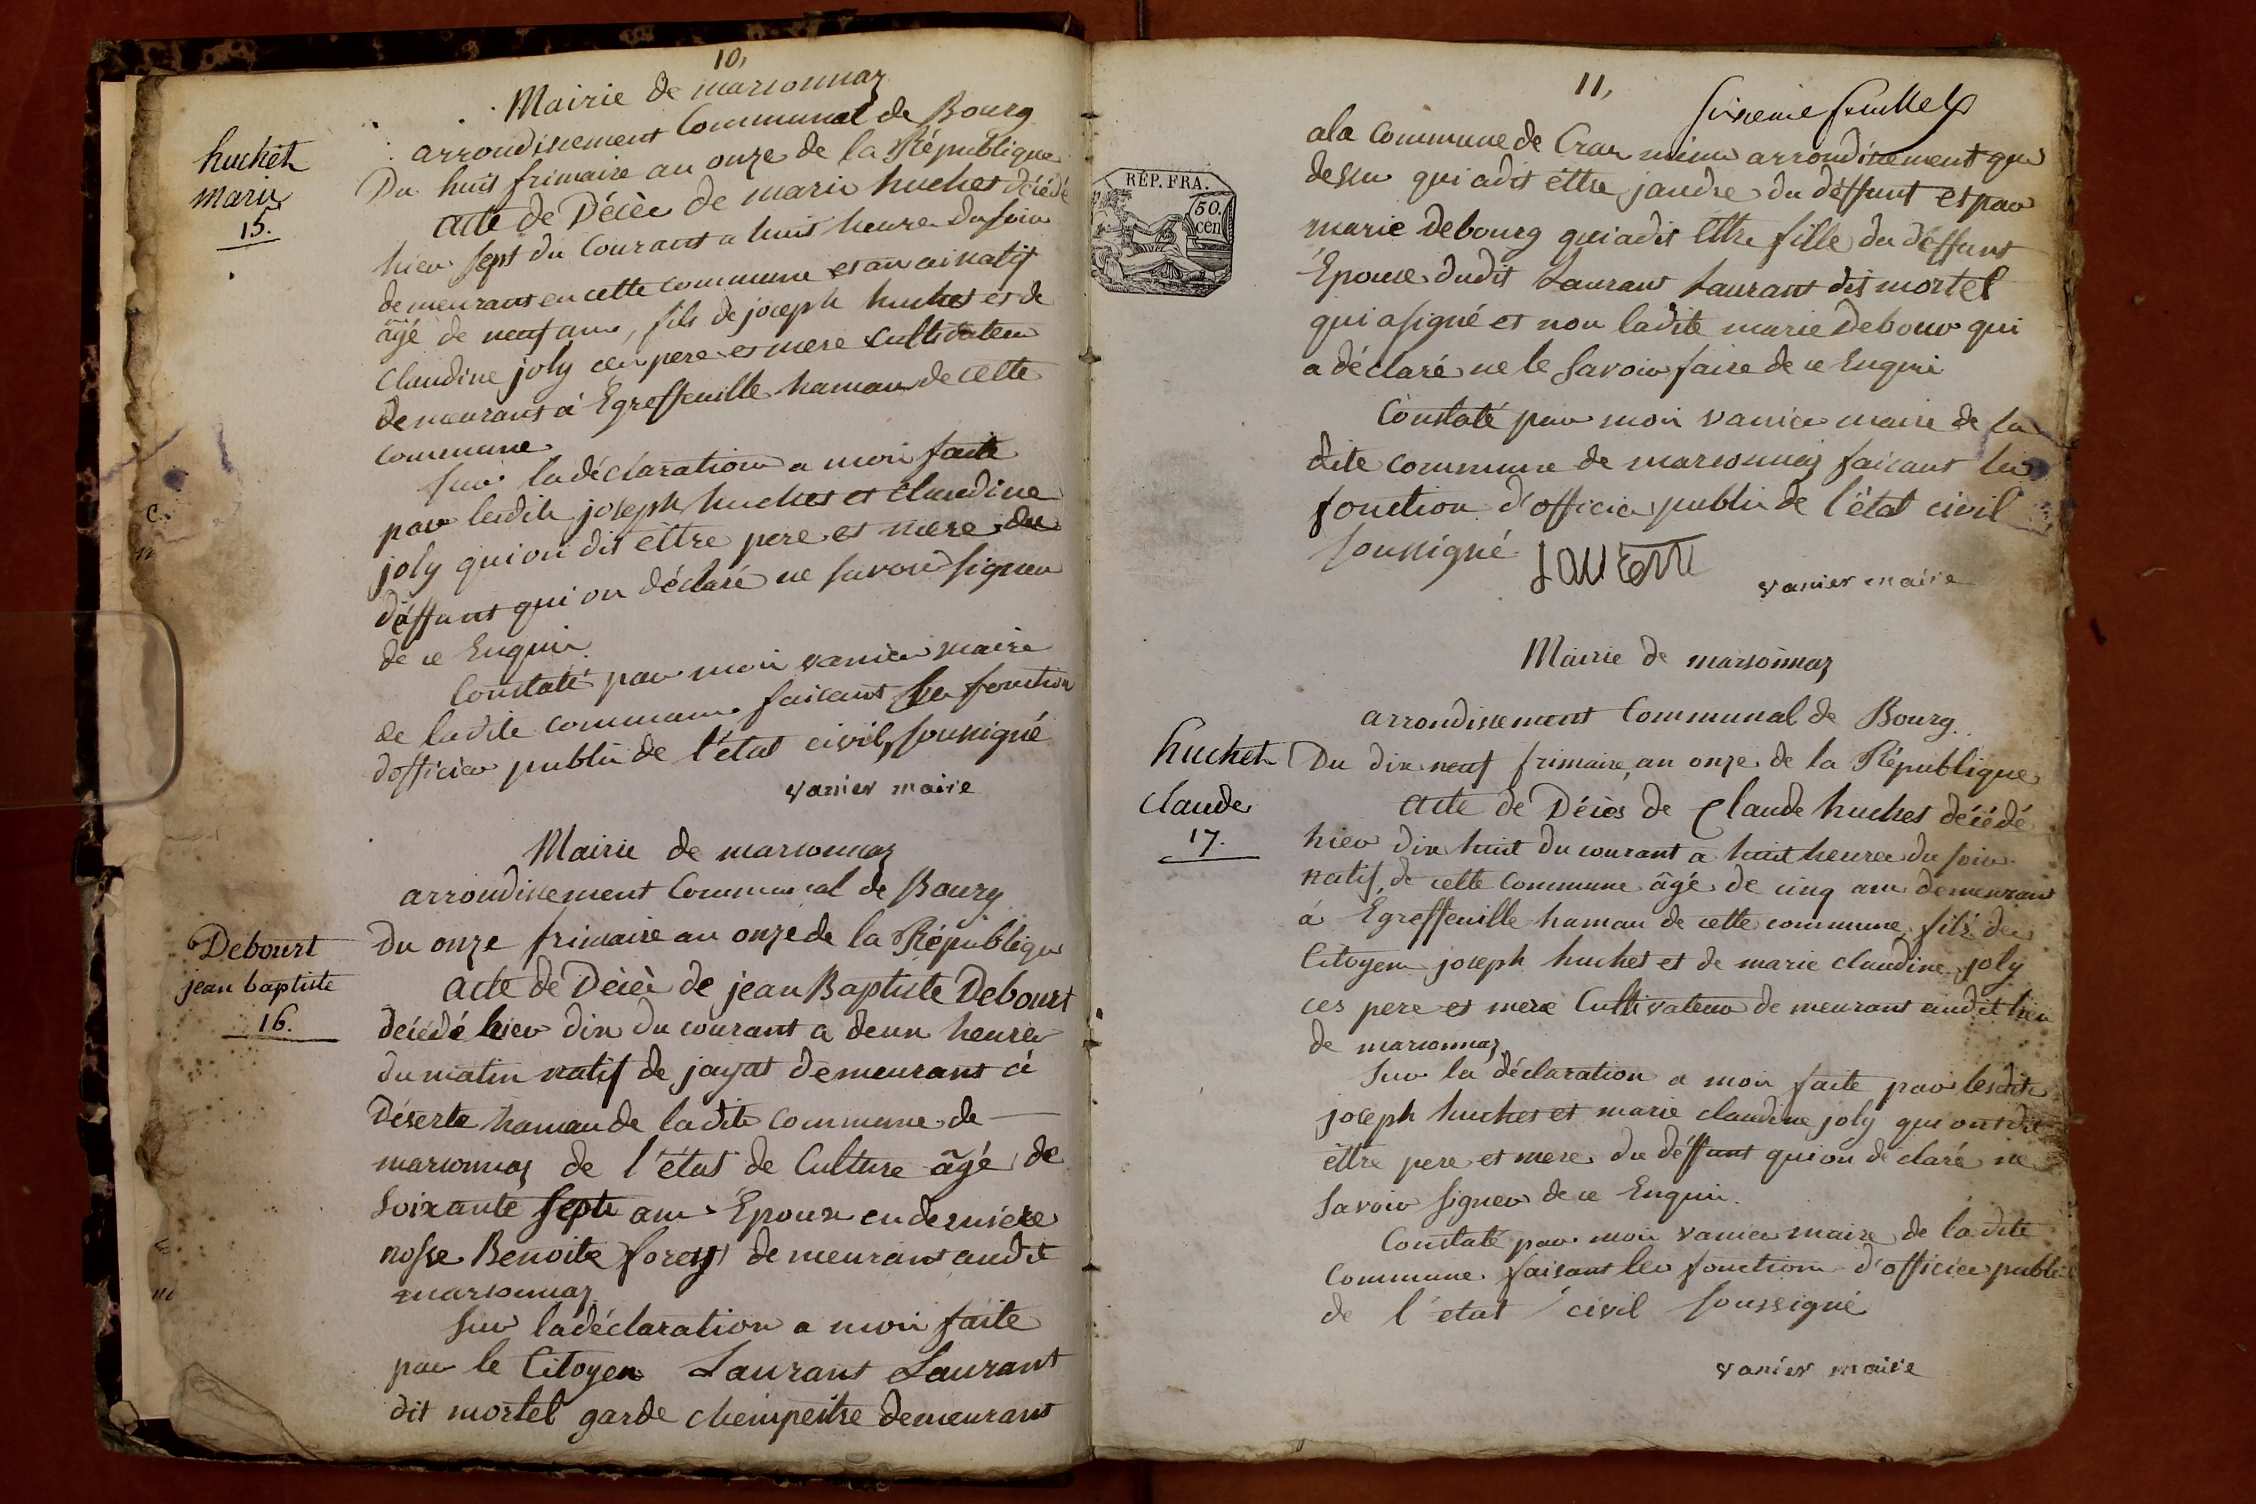 10,
Mairie de marsonnaz
arrondissement Communal de Bourg
huchet
marie
15.
Du huit frimaire an onze de la République
acte de Décès de marie huchet décédé
hier sept du Courant a huit heure du soir
demeurant en cette commune et an ai natif
âgé de neuf ans, fils de joseph huchet et de
Claudine joly ces pere et mere cultivateur
demeurant à Egreffeuille hamau de cette
commune
sur la déclaration a moi faite
par lesdits joseph huchet et claudine
joly qui on dit êttre pere et mere du
déffunt qui on déclaré ne savoir signer
de ce Enquis
Constaté par moi vanier maire
de ladite commune faisant les fonction
d'officier public de l'état civil soussigné
vanier maire
Mairie de marsonnaz
arrondissement Communal de Bourg
Debourt
jean baptiste
16.
Du onze frimaire an onze de la République
acte de Décès de jean Baptiste Debourt
décédé hier dix du courant a deux heures
du matin natif de jayat demeurant à
Déserte hamau de ladite commune de
marsonnaz de l'état de Culture âgé de
soixante sept ans Epoux en derniere
nosse Benoite forest demeurant audit
marsonnaz
sur la déclaration a moi faite
par le Citoyen Laurant Laurant
dit mortel garde chempeitre demeurant
11,
sixieme feuillet
RÉP. FRA.
50.
cen
a la commune de Cras même arrondissement que
dessu qui a dit êttre jandre du déffunt et par
marie Debourg qui a dit êttre fille du déffunt
Épouse dudit Laurant Laurant dit mortel
qui a signé et non ladite marie Debour qui
a déclaré ne le savoir faire de ce Enquis
Constaté par moi vanier maire de la
dite commune de marsonnaz faisant les
fonction d'officier public de l'état civil
soussigné
vanier maire
Mairie de marsonnaz
arrondissement Communal de Bourg
huchet
claude
17.
Du dix neuf frimaire an onze de la République
acte de Décès de Claude huchet décédé
hier dix huit du courant a huit heures du soir
natif de cette commune âgé de cinq ans demeurant
à Egreffeuille hamau de cette commune fils du
Citoyen joseph huchet et de marie claudine joly
ces pere et mere Cultivateur demeurant audit lieu
de marsonnaz
sur la déclaration a moi faite par lesdits
joseph huchet et marie claudine joly qui ont dit
êttre pere et mere du déffunt qui on déclaré ne
savoir signer de ce Enquis
Constaté par moi vanier maire de ladite
commune faisant les fonction d'officier public
de l'etat civil soussigné
vanier maire